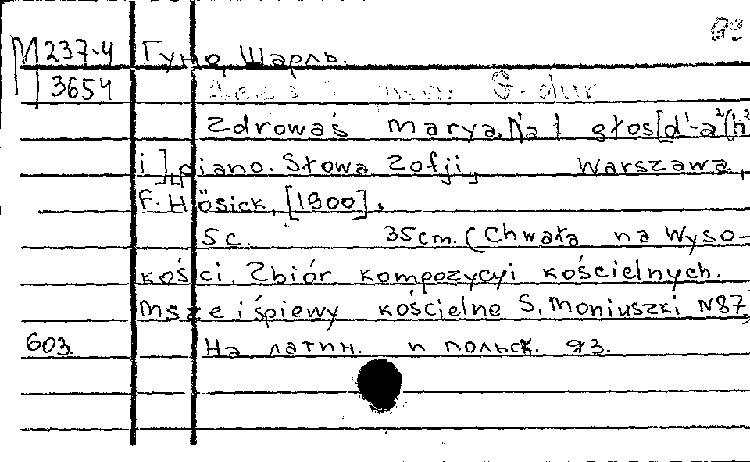 М 237-4 Гуно, Шарль.
3654 G-dur
Zdrowaś Marya. Na 1 głos [d¹-a²(h²)
i], piano. Słowa Zofji, Warszawa,
F. Hösick, [1900].
5 c. 35 cm. (Chwała na Wyso-
kości. Zbiór kompozycyi kościelnych.
Msze i śpiewy kościelne S. Moniuszki N 87
603 На латин. и польск. яз.